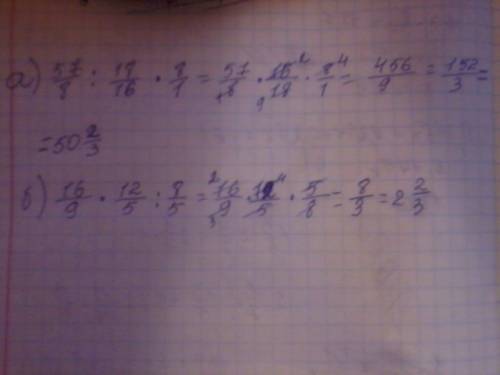 а) 57/8 : 18/16 · 8/1 = 57/8 · 16²/18₉ · 8⁴/1 = 456/9 = 152/3 =
= 50 2/3
б) 16/9 · 12/5 : 8/5 = ²16/9₃ · 12⁴/5 · 5/8 = 8/3 = 2 2/3